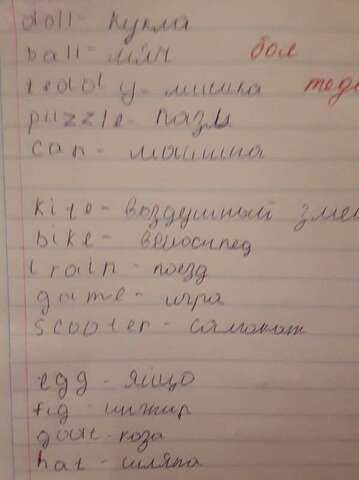 doll - кукла
ball - мяч бол
teddy - мишка теде
puzzle - пазлы
car - машина
kite - воздушный змей
bike - велосипед
train - поезд
game - игра
scooter - самокат
egg - яйцо
fig - инжир
goat - коза
hat - шляпа